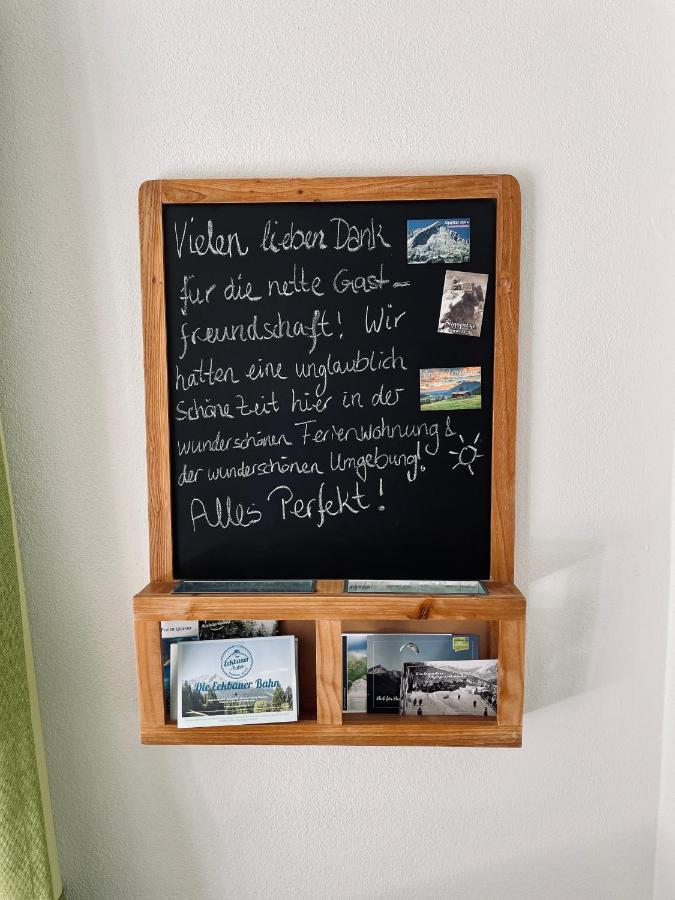 Vielen lieben Dank
für die nette Gast-
freundschaft! Wir
hatten eine unglaublich
schöne Zeit hier in der
wunderschönen Ferienwohnung &
der wunderschönen Umgebung!
Alles Perfekt!
Eckbauer
Bahn
Die Eckbauer Bahn